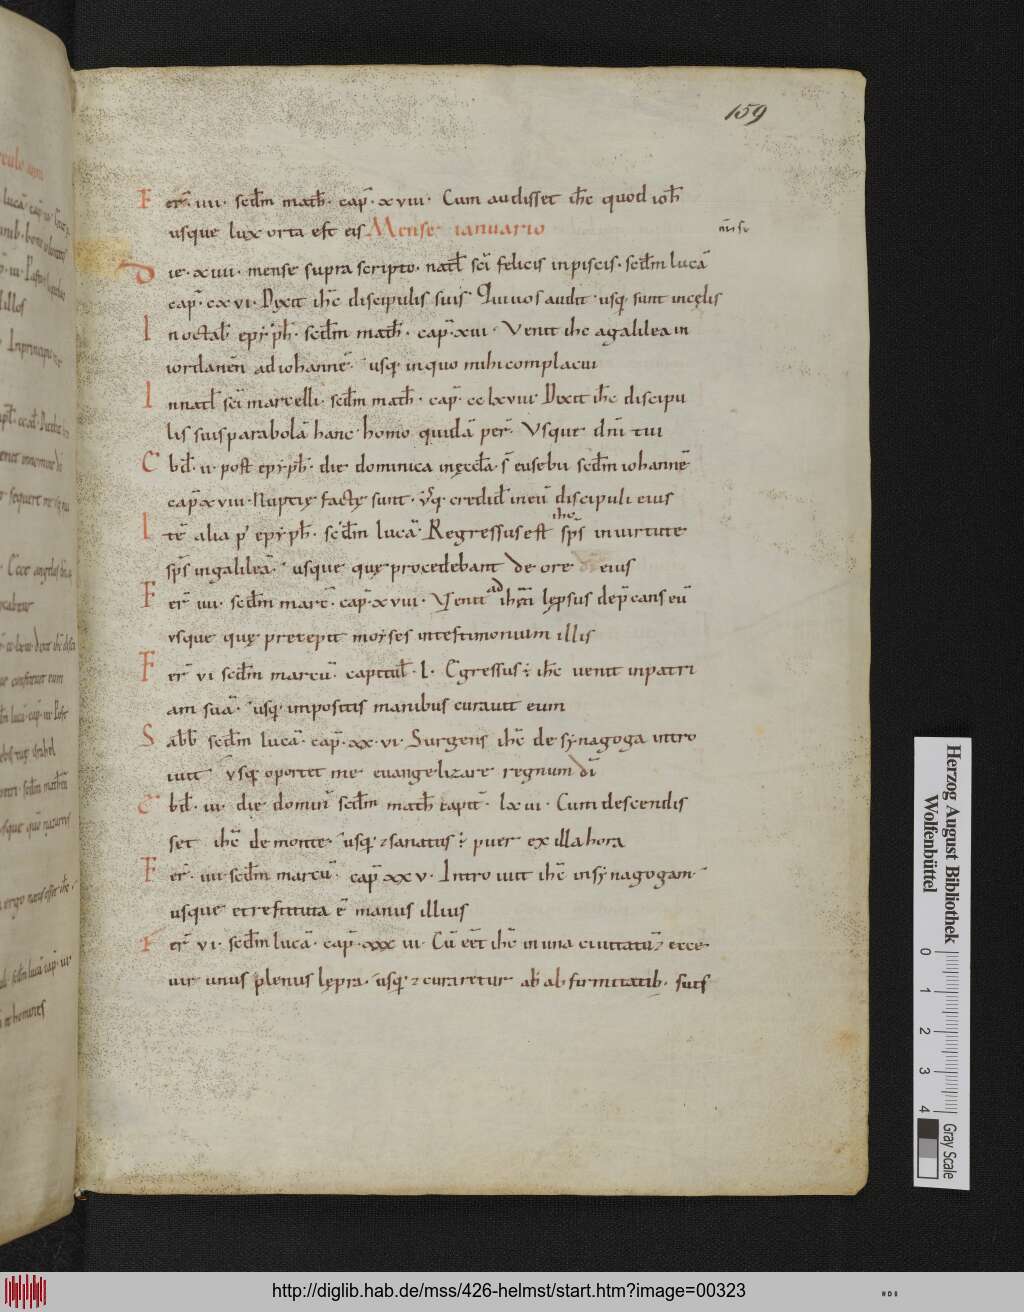 159
Fer̄ · iiii · scd̄m math̄ · cap̄ · xviii · Cum audisset ihc̄ quod ioh̄
usque lux orta est eis Mense ianuario
Die · xiiii · mense supra scripto · natl̄ sc̄i felicis in piscis · scd̄m lucā
cap̄ · cxvi · Dixit ihc̄ discipulis suis Qui uos audit · usq · sunt in cęlis
In octab̄ epyph̄ · scd̄m math̄ · cap̄ xiii · Venit ihc a galilea in
iordanēn ad iohannē · usq · in quo mihi complacui
In natl̄ sc̄i marcelli · scd̄m math̄ · cap̄ · cclxviiii Dixit ihc̄ discipu
lis suis parabolā hanc · homo quidā per̄ · Vsque dn̄i tui
Ebd̄ · ii · post epyph̄ · die dominica scd̄m iohannē
cap̄ xviii · Nuptię factę sunt · usq · credid̄ in eū discipuli eius
Itē alia p̄ epyph̄ · scd̄m lucā · Regressus est ihc sp̄s in uirtute
sp̄s in galileā · usque quę procedebant de ore eius
Fer̄ iiii · scd̄m marc̄ · cap̄ · xviii · Venit ad ihm̄ lępsus dep̄cans eū
usque quę precepit moyses in testimonium illis
Fer̄ vi scd̄m marcū · capitul̄ · l · Egressus ihc̄ uenit in patri
am suā · usq · impositis manibus curauit eum
Sabb̄ scd̄m lucā · cap̄ · xxvi · Surgens ihc̄ de synagoga intro
iuit usq · oportet me euangelizare regnum dī
Ebd̄ · iii · die domin̄ scd̄m math̄ capit̄ · lxiii · Cum descendis
set ihc̄ de monte usq · & sanatus ÷ puer ex illa hora
Fer̄ · iiii · scd̄m marcū · cap̄ xxv · Introiuit ihc̄ in synagogam
usque et restituta ē manus illius
Fer̄ vi · scd̄m lucā · cap̄ · xxxiii · Cū eēt ihc̄ in una ciuitatū & ecce
uir unus plenus lępra · usq · & curaretur ab ab firmitatib · suis
Herzog August Bibliothek
Wolfenbüttel
0 1 2 3 4
Gray Scale
http://diglib.hab.de/mss/426-helmst/start.htm?image=00323